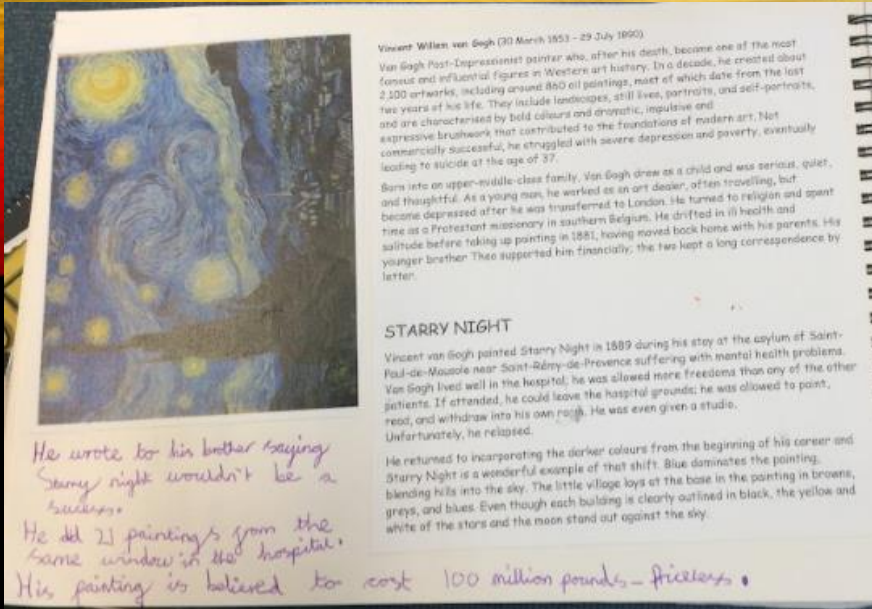 Vincent Willem van Gogh (30 March 1853 – 29 July 1890)
Van Gogh Post-Impressionist painter who, after his death, became one of the most
famous and influential figures in Western art history. In a decade, he created about
2,100 artworks, including around 860 oil paintings, most of which date from the last
two years of his life. They include landscapes, still lives, portraits, and self-portraits,
and are characterised by bold colours and dramatic, impulsive and
expressive brushwork that contributed to the foundations of modern art. Not
commercially successful, he struggled with severe depression and poverty, eventually
leading to suicide at the age of 37.
Born into an upper-middle-class family, Van Gogh drew as a child and was serious, quiet,
and thoughtful. As a young man, he worked as an art dealer, often travelling, but
became depressed after he was transferred to London. He turned to religion and spent
time as a Protestant missionary in southern Belgium. He drifted in ill health and
solitude before taking up painting in 1881, having moved back home with his parents. His
younger brother Theo supported him financially; the two kept a long correspondence by
letter.
STARRY NIGHT
Vincent van Gogh painted Starry Night in 1889 during his stay at the asylum of Saint-
Paul-de-Mausole near Saint-Rémy-de-Provence suffering with mental health problems.
Van Gogh lived well in the hospital; he was allowed more freedoms than any of the other
patients. If attended, he could leave the hospital grounds; he was allowed to paint,
read, and withdraw into his own room. He was even given a studio.
Unfortunately, he relapsed.
He returned to incorporating the darker colours from the beginning of his career and
Starry Night is a wonderful example of that shift. Blue dominates the painting,
blending hills into the sky. The little village lays at the base in the painting in browns,
greys, and blues. Even though each building is clearly outlined in black, the yellow and
white of the stars and the moon stand out against the sky.
He wrote to his brother saying
Starry night wouldn't be a
success.
He did 21 paintings from the
same window in the hospital.
His painting is believed to cost 100 million pounds – Priceless.